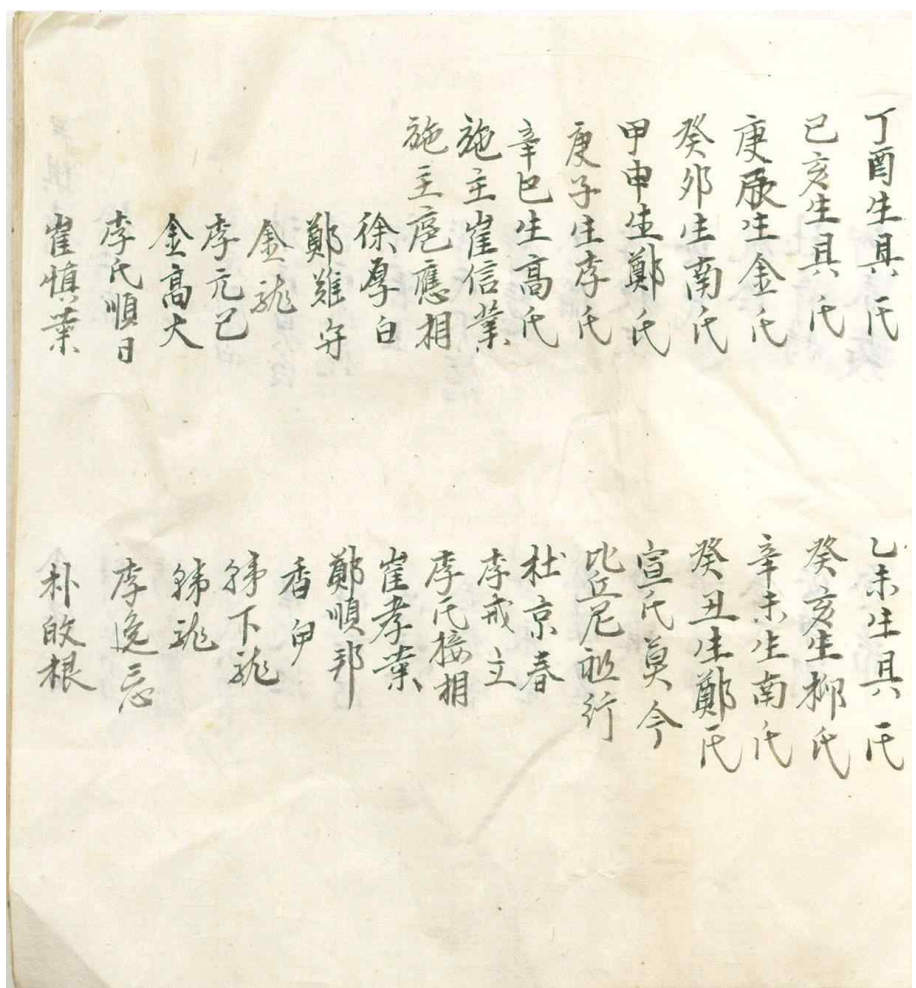 丁酉生具氏
己亥生具氏
庚辰生金氏
癸卯生南氏
甲申生鄭氏
庚子生李氏
辛巳生高氏
施主崔信業
施主扈應相
徐厚白
鄭難守
金龍
李元己
金高大
李氏順日
崔慎業
乙未生具氏
癸亥生柳氏
辛未生南氏
癸丑生鄭氏
宣氏莫今
比丘尼祖行
杜京春
李戒主
李氏接相
崔孝業
鄭順邦
香伊
下龍
龍
李逸忘
朴根